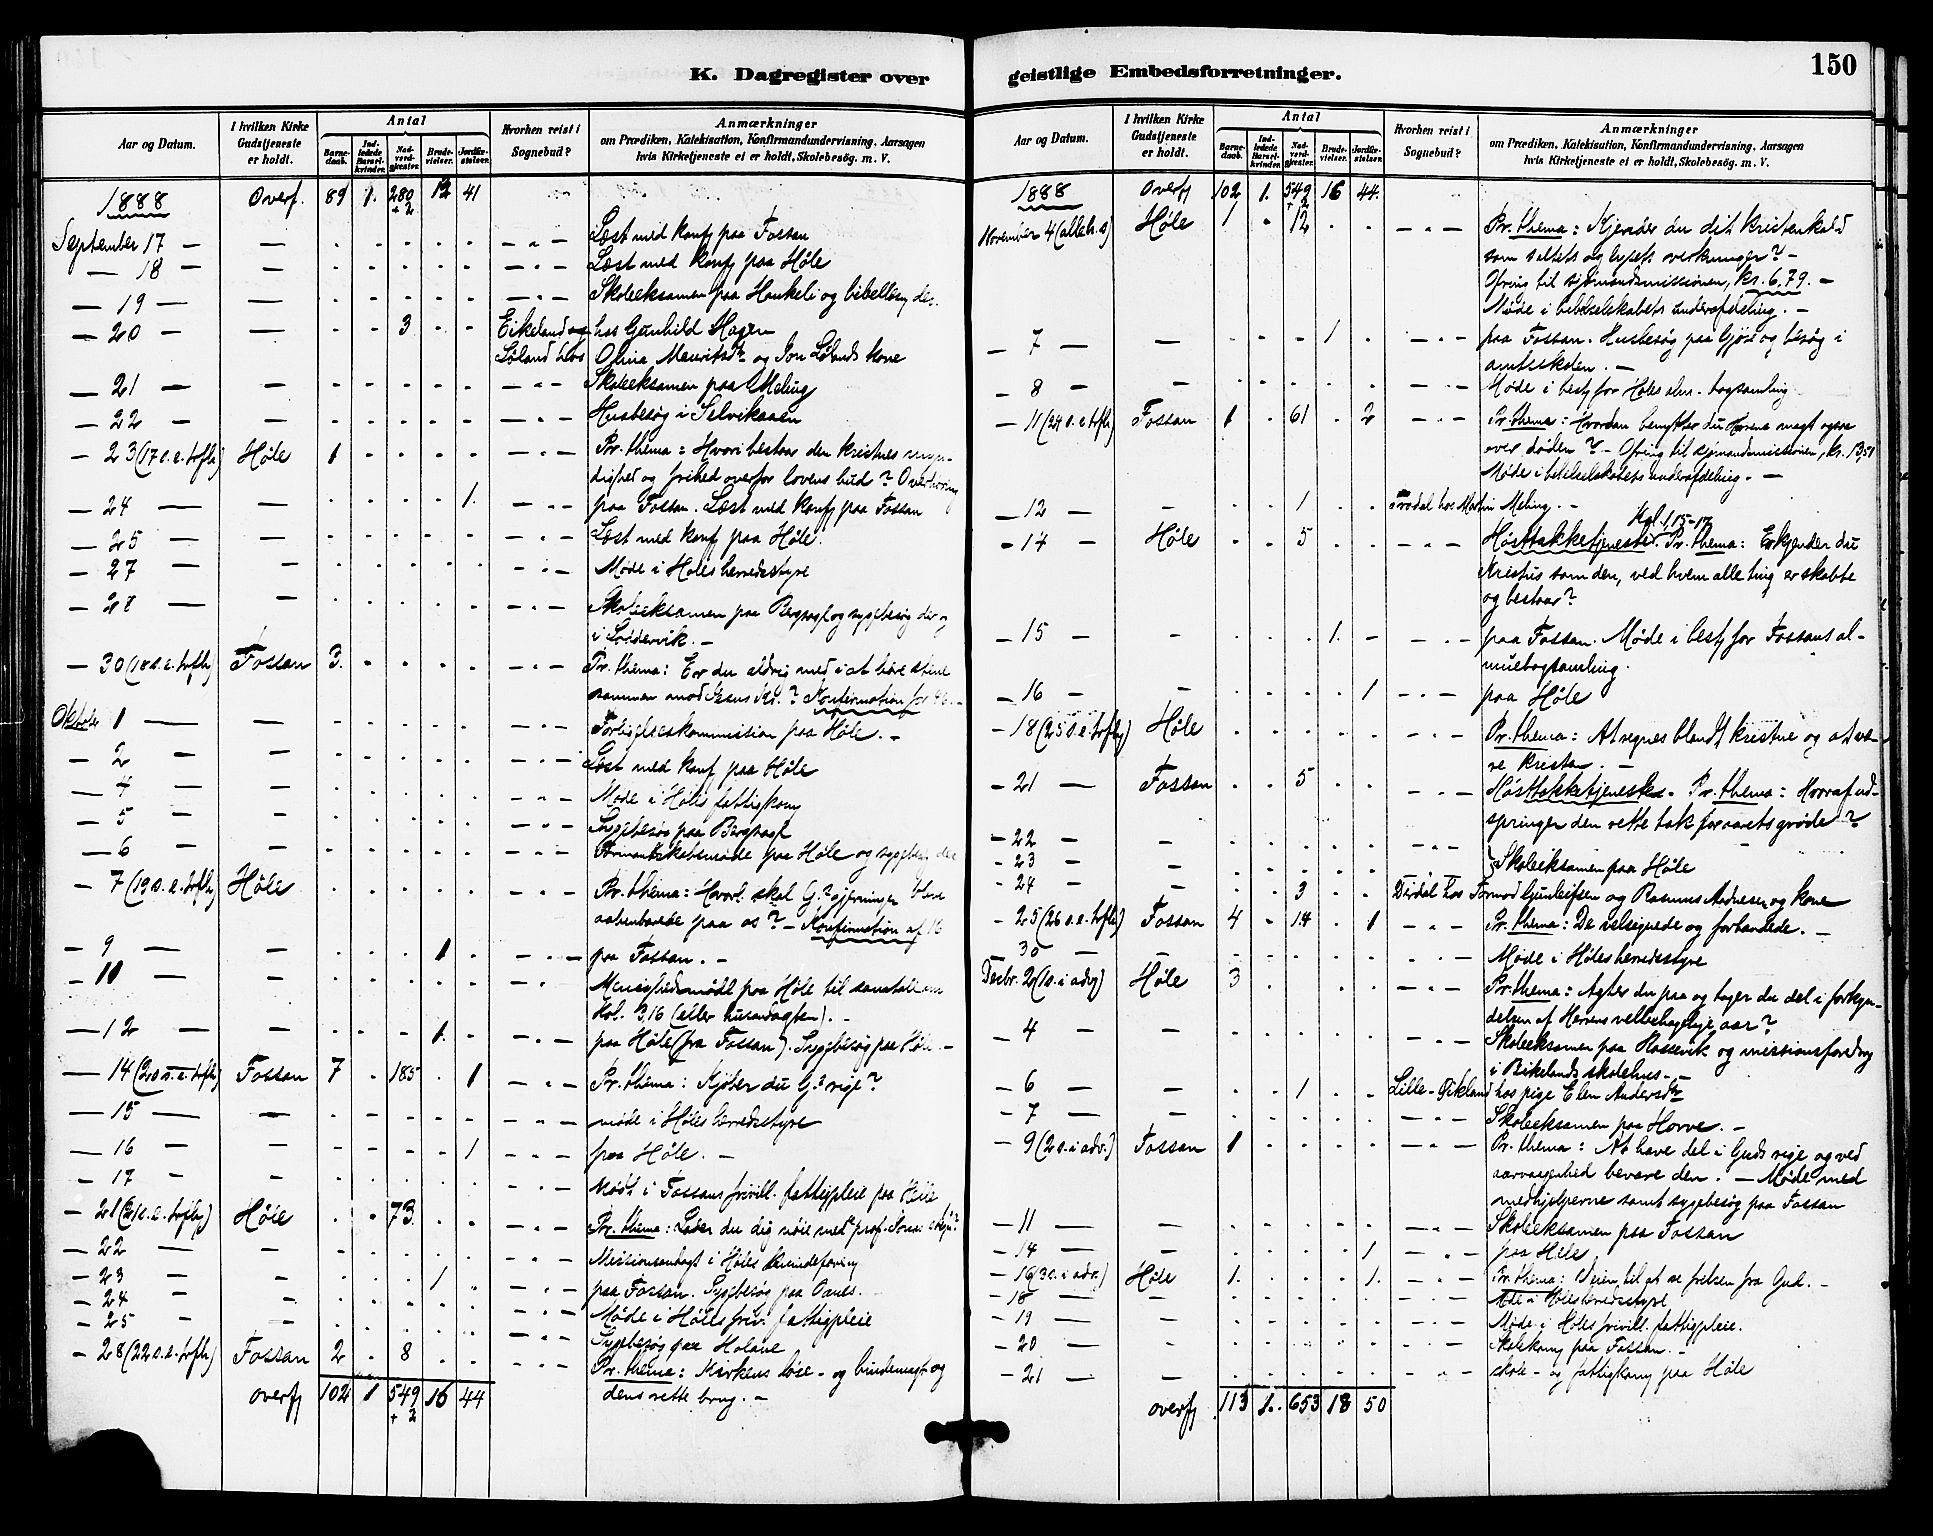 K. Dagregister over
Aar og Datum.
I hvilken Kirke Gudstjeneste er holdt.
Antal
Barnedaab.
Indledede Barselkvinder.
Nadverdgjester.
Brudevielser.
Jordfæstelser.
Hvorhen reist i Sognebud?
Anmærkninger
om Prædiken, Katekisation, Konfirmandundervisning, Aarsagen
hvis Kirketjeneste ei er holdt, Skolebesög. m. V.
1888 Overf. 89 1. 280 + 2 12 41
September 17 — — Læst med konf paa Fossan
— 18 — — Læst med konf paa Høle
— 19 — — Skoleeksamen paa Haukeli og bibellæsn der.
— 20 — — 3 Eikeland og hos Gunhild Hagen
Løland hos Olina Mauritsdr og Jon Lølands kone
— 21 — — Skoleeksamen paa Meling
— 22 — — Husbesøg i Selvikaaen
— 23 (17 s. e. trefh) Høle 1 Pr. thema: Hvori bestaar den kristnes
og frihed overfor lovens bud?
— 24 — — 1. paa Fossan. Læst med konf paa Fossan
— 25 — — Læst med konf paa Høle.
— 27 — — Møde i Høles herredsstyre
— 28 — — Skoleeksamen paa Bergsagl og sygebesøg der og
i Loddervik. —
— 30 (18 s. e. trefh) Fossan 3. Pr. thema: Er du aldrig med i at bære stene
sammen mod Jesus Kr.? Konfirmation for
Oktober 1 — — Forligelseskommission paa Høle. —
— 2 — — Læst med konf paa Høle
— 4 — — Møde i Høles fattigkom
— 5 — — Sygebesøg paa Bergsagl
— 6 — — Formandskabsmøde paa Høle og sygebesøg der
— 7 (19 s. e. trefh) Høle Pr. thema: Hvorl. skal Gs gjerninger blive
aabenbarede paa os? — Konfirmation af 18
— 9 — — 1 paa Fossan. —
— 10 — — Menighedsmøde paa Høle til samtale om
Kol. 3,16 (eller husandagten). —
— 12 — — 1. paa Høle (fra Fossan). Sygebesøg paa Høle. —
— 14 (20 s. e. trefh) Fossan 7 185 1 Pr. thema: Kjøber du Gs rige?
— 15 — — møde i Høles herredsstyre
— 16 — — 1 paa Høle. —
— 17 — — Møde i Fossans frivill. fattigpleie paa Høle
— 21 (21 s. e. trefh) Høle 73. Pr. thema: Lader du dig nøie med
— 22 — — Missionsandagt i Høles kvindeforening
— 23 — — 1 paa Fossan. Sygebesøg paa
— 24 — — Møde i Høles friv. fattigpleie
— 25 — — Sygebesøg paa Holane
— 28 (22 s. e. trefh) Fossan 2 8 Pr. thema: Kirkens løse- og bindemagt og
dens rette brug. —
overf 102 1 549 + 2 16 44
geistlige Embedsforretninger.
150
Aar og Datum.
I hvilken Kirke Gudstjeneste er holdt.
Antal
Barnedaab.
Indledede Barselkvinder.
Nadverdgjester.
Brudevielser.
Jordfæstelser.
Hvorhen reist i Sognebud?
Anmærkninger
om Prædiken, Katekisation, Konfirmandundervisning, Aarsagen
hvis Kirketjeneste ei er holdt, Skolebesög. m. V.
1888 Overf 102 1. 549 + 2 16 44.
November 4 (alleh. s) Høle 1 12 Pr. thema: Kjender du dit kristenkald
som saltets og lysets virkninger? —
Ofring til sjømandsmissionen, kr. 6,79. —
Møde i bibelselskabets underafdeling. —
— 7 — — 1 paa Fossan. Husbesøg paa Gjøse og besøg i
amtsskolen. —
— 8 — — Møde i best for Høles alm. bogsamling
— 11 (24 s. e trefh) Fossan 1 61 2 Pr. thema: Hvordan benytter du Herrens magt ogsaa
over døden? — Ofring til sjømandsmissionen, kr. 13,51
Møde i bibelselskabets underafdeling. —
— 12 — — 1 Frødal hos Martin Meling. —
Kol. 1, 15-17
— 14 — Høle 5 Høsttakketjeneste. Pr. thema: Erkjender du
Kristus som den, ved hvem alle ting er skabte
og bestaar?
— 15 — — 1. paa Fossan. Møde i best for Fossans al-
muebogsamling.
— 16 — — 1 paa Høle
— 18 (25 s. e. trefh) Høle Pr. thema: At regnes blandt kristne og at væ-
re kristen. —
— 21 — Fossan 5 Høsttakketjeneste. Pr. thema: Hvoraf ud-
springer den rette tak for aarets grøde?
— 22 — —
— 23 — — Skoleeksamen paa Høle
— 24 — — 3 Dirdal hos Tormod Gunleifsen og Rasmus Andreasen og kone
— 25 (26 s. e. trefh) Fossan 4 14 1 Pr. thema: De velsignede og forbandede. —
— 30 — — Møde i Høles herredsstyre
Decbr. 2 (1 s. i adv) Høle 3 Pr. thema: Agter du paa og tager du del i forkyn-
delsen af Herrens velbehagelige aar?
— 4 — — Skoleeksamen paa Rossevik og missionsforedrag
i Eikelands skolehus. —
— 6 — — 1 Lille-Eikeland hos pige Elen Andersdr
— 7 — — Skoleeksamen paa Horve. —
— 9 (2 s. i adv.) Fossan 1 Pr. thema: At have del i Guds rige og ved
aarvaagenhed bevare den. — Møde med
medhjelperne samt sygebesøg paa Fossan
— 11 — — Skoleeksamen paa Fossan
— 14 — — 1 paa Høle
— 16 (3 s. i adv.) Høle 1. 1. Pr. thema: Veien til at se frelsen fra Gud. —
— 18 — — Møde i Høles herredsstyre
— 19 — — Møde i Høles frivill. fattigpleie.
— 20 — — Skolekom paa Fossan. —
— 21 — — skole- og fattigkom paa Høle
overf 113 1. 653 18 50